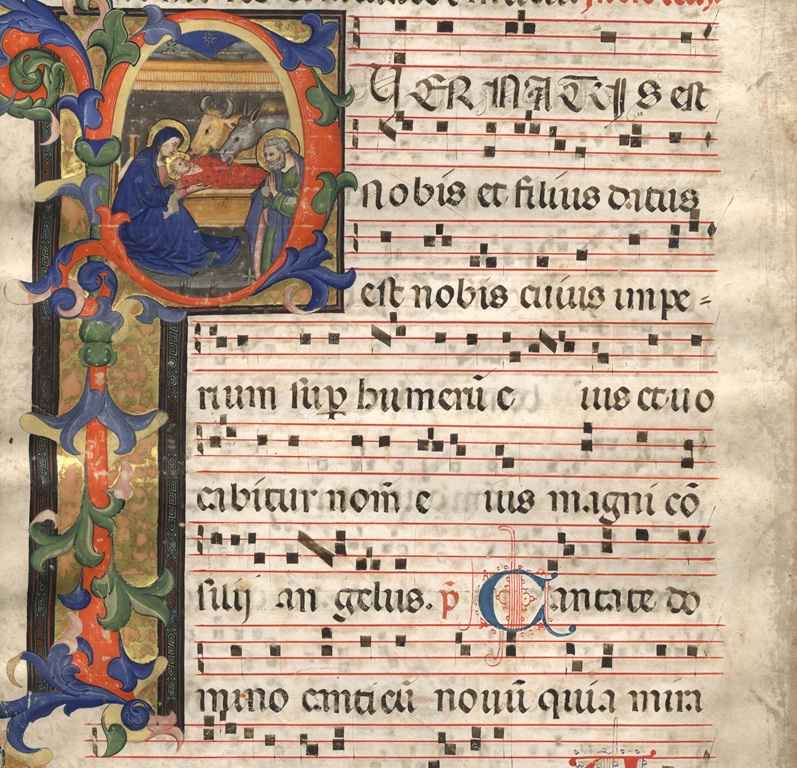 PUER NATUS est
nobis et filius datus
est nobis cuius impe=
rium sup humerũ e ius et uo
cabitur nom̃ e ius magni cõ
silij an gelus. p̃ Cantate do
mino canticũ nouũ quia mira